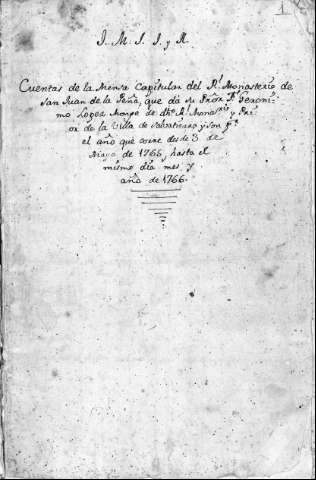 1
J. M. J. y A.
Cuentas de la Mensa Capitular del Rl. Monasterio de
San Juan de la Peña, que da su Pror. Pe. Geroni-
mo Lopez Monge de dho. Rl. Monasrio. y Pri-
or de la Villa de Salvatierra y son pr.
el año que corre desde 3 de
Mayo de 1765 hasta el
mismo dia mes, y
año de 1766.